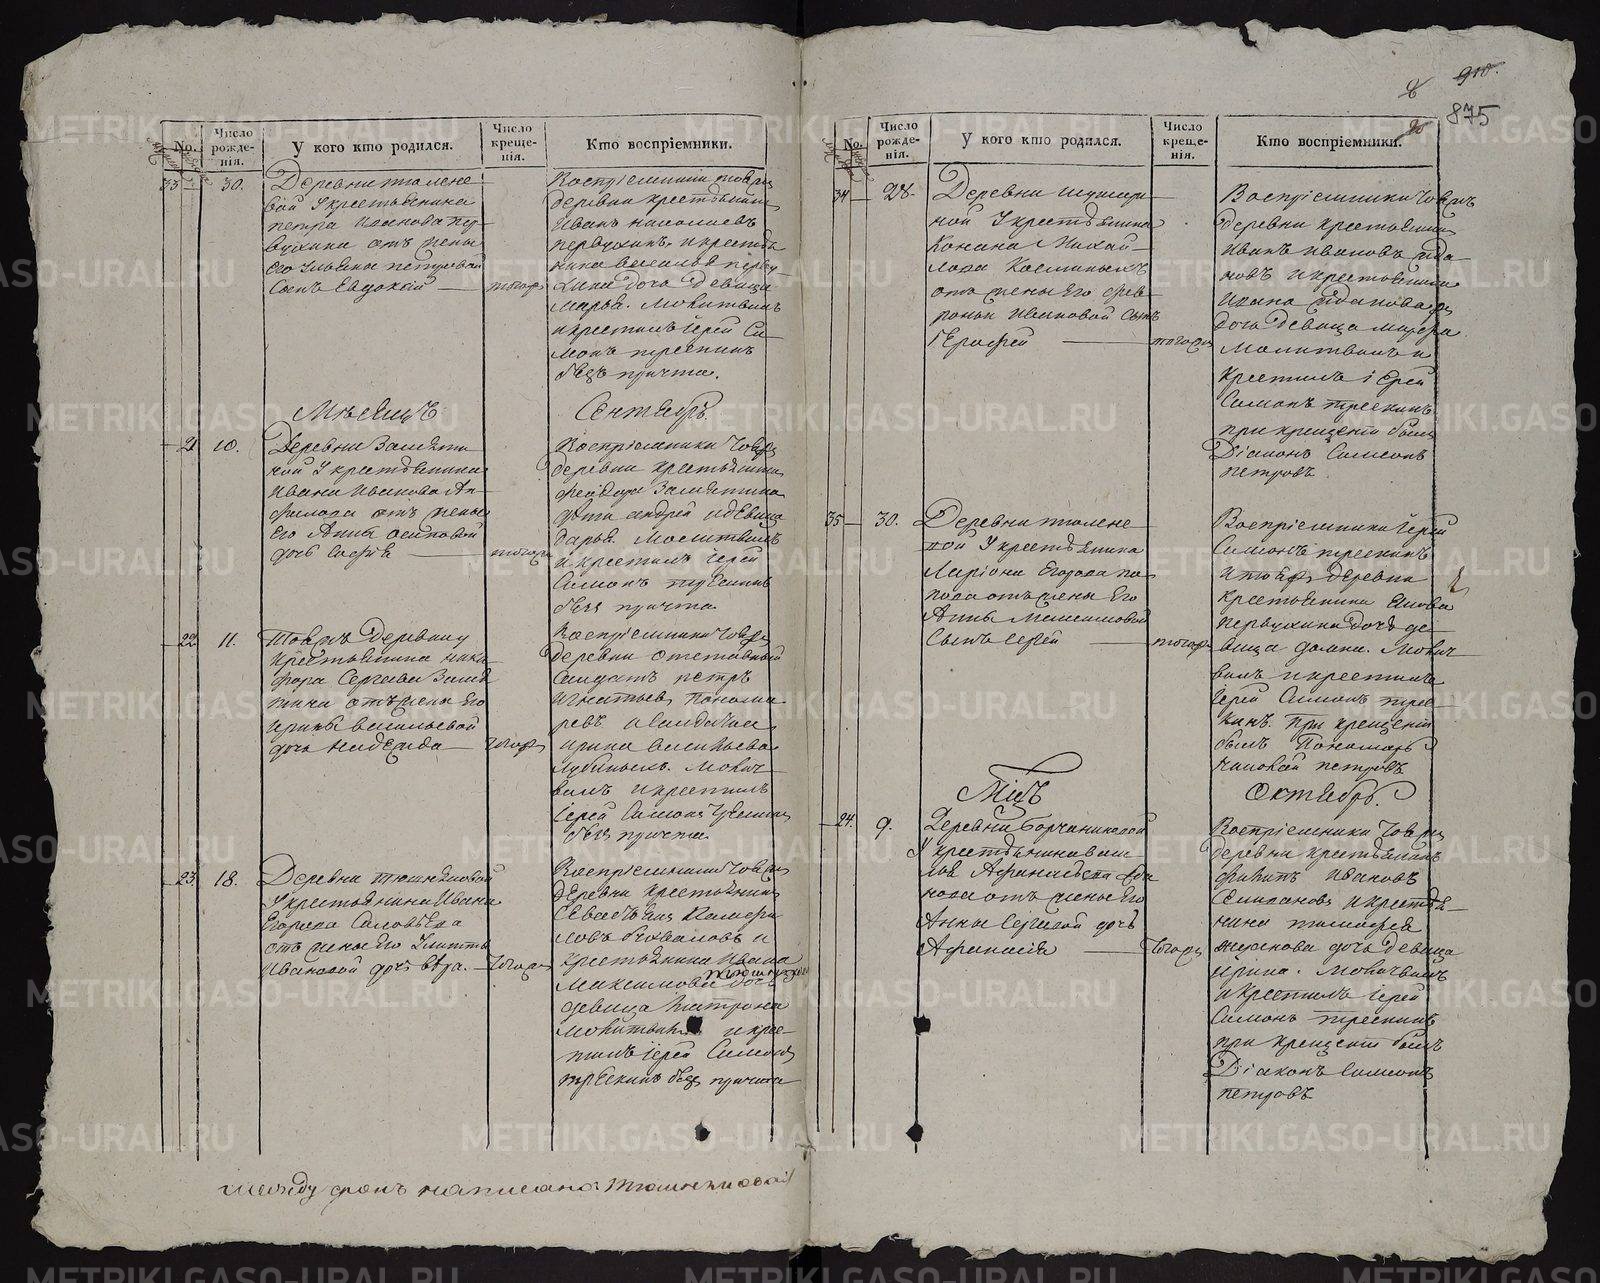 910.
875
No.
Число рожде-нія.
У кого кто родился.
Число креще-нія.
Кто воспріемники.
33
30.
Деревни
вой У крестьянина
петра Иванова пер-
вухина отъ жены
Его Ульяны петровой
Сынъ Евдокій
тогожъ
Воспріемники тояжъ
деревни крестьянинъ
Иванъ николаевъ
первухинъ, и крестья
нина василья перву
хина дочь девица
марья. Молитвилъ
и крестилъ Іерей Си-
монъ
безъ причта.
Мѣсяцъ
Сентябрь
21
10.
Деревни Замяти
ной У крестьянина
Ивана Иванова Ан-
филова отъ жены
Его Анны осиповой
дочь Софія
тогожъ
Воспріемники тояжъ
деревни крестьянина
феодора Замятина
дѣти андрей и девица
дарья Молитвилъ
и крестилъ Іерей
Симонъ
безъ причта
22
11.
Тояжъ Деревни у
крестьянина ники
фора Сергеева Замя
тина отъ жены Его
Ирины васильевой
дочь надежда
тогожъ
Воспріемники тояжъ
деревни отставный
Салдатъ петръ
Игнатьевъ Понома
ревъ и салдатка
Ирина васильева
Молит
вилъ и крестилъ
Іерей Симонъ
безъ причта
23
18.
Деревни тюшняковой
У крестьянина Ивана
Егорова Соловьева
отъ жены Его Улитты
Ивановой дочь вѣра.
тогожъ
Воспріемники тояжъ
деревни крестьянинъ
Севастьянъ Памфи
ловъ и
крестьянина Ивана
Максимова дочь
девица Матрона
Молитвилъ и крес-
тилъ Іерей Симонъ
безъ причта
между строкъ написано:
No.
Число рожде-нія.
У кого кто родился.
Число креще-нія.
Кто воспріемники.
34
28.
Деревни
ной У крестьянина
Конана Михай-
лова Косминыхъ
отъ жены Его Фев-
роньи Ивановой Сынъ
Ерофей
тогожъ
Воспріемники тояжъ
деревни крестьянинъ
Иванъ Ивановъ жда
новъ и крестьянина
Ивана Жданова
дочь девица марфа
Молитвилъ и
крестилъ іерей
Симонъ
при крещеніи былъ
Діаконъ Симеонъ
петровъ
35
30.
Деревни
вой У крестьянина
Ларіона Егорова по-
пова отъ жены Его
Анны Максимовой
Сынъ Сергій
тогожъ
Воспріемники Іерей
Симонъ
и тояжъ деревни
крестьянина Якова
первухина дочь де-
вица домна. Молит
вилъ и крестилъ
Іерей Симонъ
При крещеніи
былъ Пономарь
петровъ
Мцъ
Октябрь.
24.
9.
Деревни Боръчаниновой
У крестьянина васи
лья Афанасьева
нова отъ жены Его
Анны Сергеевой дочь
Афанасія
тогожъ
Воспріемники тояжъ
деревни крестьянинъ
филипъ Ивановъ
и крестья-
нина тимофея
жданова дочь девица
Ирина. Молитвилъ
и крестилъ Іерей
Симонъ
при крещеніи былъ
Діаконъ Симеонъ
петровъ